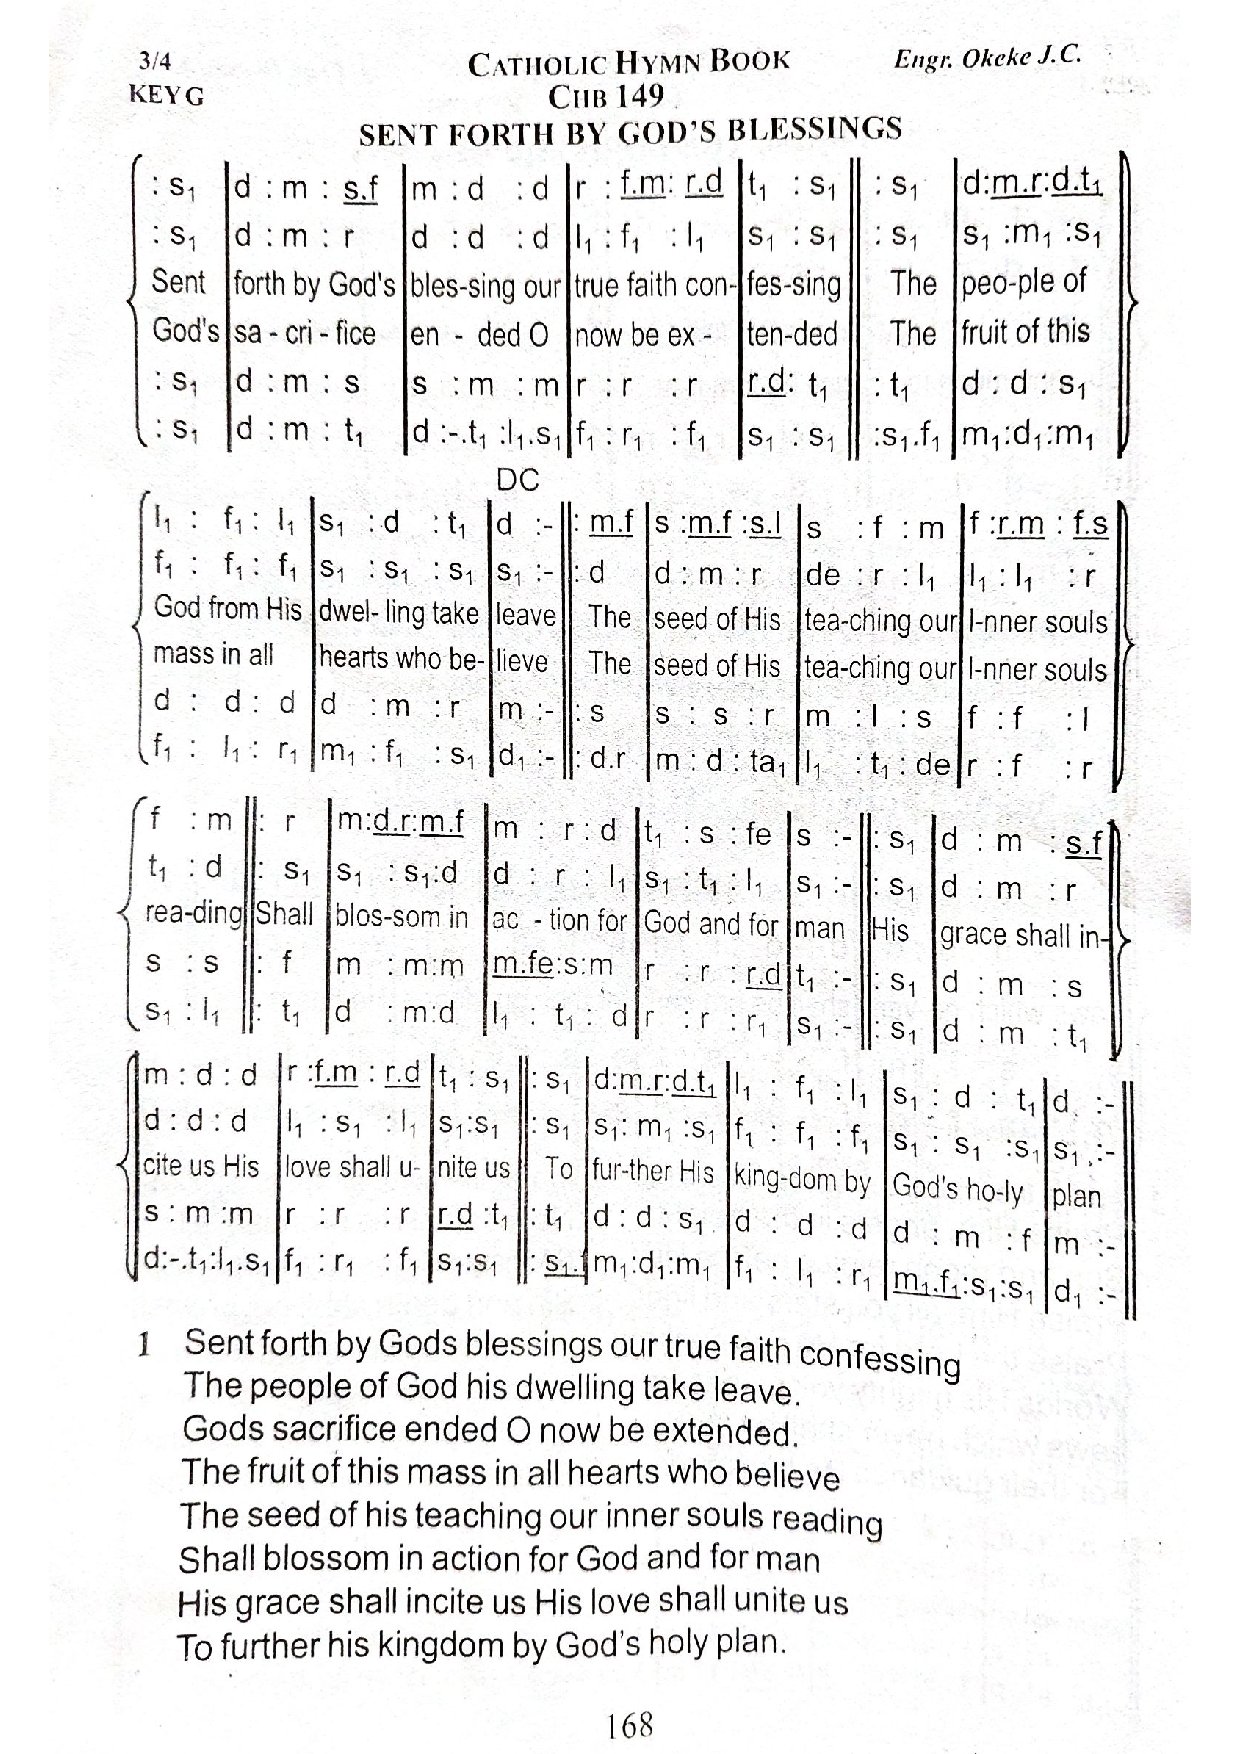 3/4 CATHOLIC HYMN BOOK Engr. Okeke J.C.
KEY G CHB 149
SENT FORTH BY GOD'S BLESSINGS
: s₁ | d : m : s.f | m : d : d | r : f.m : r.d | t₁ : s₁ || : s₁ | d:m.r:d.t₁ |
: s₁ | d : m : r | d : d : d | l₁ : f₁ : l₁ | s₁ : s₁ || : s₁ | s₁ :m₁ :s₁
Sent forth by God's bles-sing our true faith con- fes-sing The peo-ple of
God's sa - cri - fice en - ded O now be ex - ten-ded The fruit of this
: s₁ | d : m : s | s : m : m | r : r : r | r.d: t₁ || : t₁ | d : d : s₁
: s₁ | d : m : t₁ | d :-.t₁ :l₁.s₁ | f₁ : r₁ : f₁ | s₁ : s₁ || :s₁.f₁ | m₁:d₁:m₁
DC
l₁ : f₁ : l₁ | s₁ : d : t₁ | d :- || : m.f | s :m.f :s.l | s : f : m | f :r.m : f.s
f₁ : f₁ : f₁ | s₁ : s₁ : s₁ | s₁ :- || : d | d : m : r | de : r : l₁ | l₁ : l₁ : r
God from His dwel- ling take leave The seed of His tea-ching our I-nner souls
mass in all hearts who be- lieve The seed of His tea-ching our I-nner souls
d : d : d | d : m : r | m :- || : s | s : s : r | m : l : s | f : f : l
f₁ : l₁ : r₁ | m₁ : f₁ : s₁ | d₁ :- || : d.r | m : d : ta₁ | l₁ : t₁ : de | r : f : r
f : m || : r | m:d.r:m.f | m : r : d | t₁ : s : fe | s :- || : s₁ | d : m : s.f
t₁ : d || : s₁ | s₁ : s₁:d | d : r : l₁ | s₁ : t₁ : l₁ | s₁ :- || : s₁ | d : m : r
rea-ding Shall blos-som in ac - tion for God and for man His grace shall in-
s : s || : f | m : m:m | m.fe:s:m | r : r : r.d | t₁ :- || : s₁ | d : m : s
s₁ : l₁ || : t₁ | d : m:d | l₁ : t₁ : d | r : r : r₁ | s₁ :- || : s₁ | d : m : t₁
m : d : d | r :f.m : r.d | t₁ : s₁ || : s₁ | d:m.r:d.t₁ | l₁ : f₁ : l₁ | s₁ : d : t₁ | d :-
d : d : d | l₁ : s₁ : l₁ | s₁:s₁ || : s₁ | s₁: m₁ :s₁ | f₁ : f₁ : f₁ | s₁ : s₁ :s₁ | s₁ :-
cite us His love shall u- nite us To fur-ther His king-dom by God's ho-ly plan
s : m :m | r : r : r | r.d :t₁ || : t₁ | d : d : s₁ | d : d : d | d : m : f | m :-
d:-.t₁:l₁.s₁ | f₁ : r₁ : f₁ | s₁:s₁ || : s₁. | m₁:d₁:m₁ | f₁ : l₁ : r₁ | m₁.f₁:s₁:s₁ | d₁ :-
1 Sent forth by Gods blessings our true faith confessing
The people of God his dwelling take leave.
Gods sacrifice ended O now be extended.
The fruit of this mass in all hearts who believe
The seed of his teaching our inner souls reading
Shall blossom in action for God and for man
His grace shall incite us His love shall unite us
To further his kingdom by God's holy plan.
168